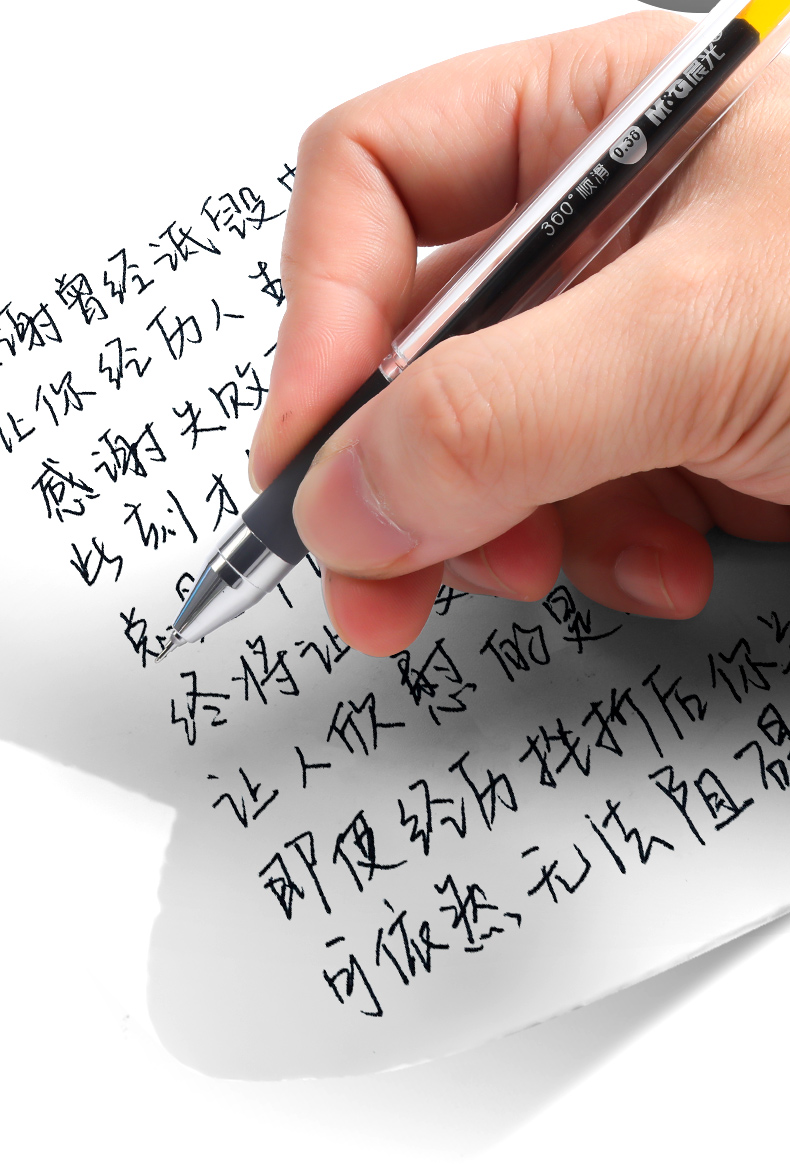 M&G晨光
0.38
360° 顺滑
谢曾经诋毁
让你经历人
感谢失败
此刻才
总
终将让
让人欣慰的是
即便经历挫折后你
可依然无法阻碍